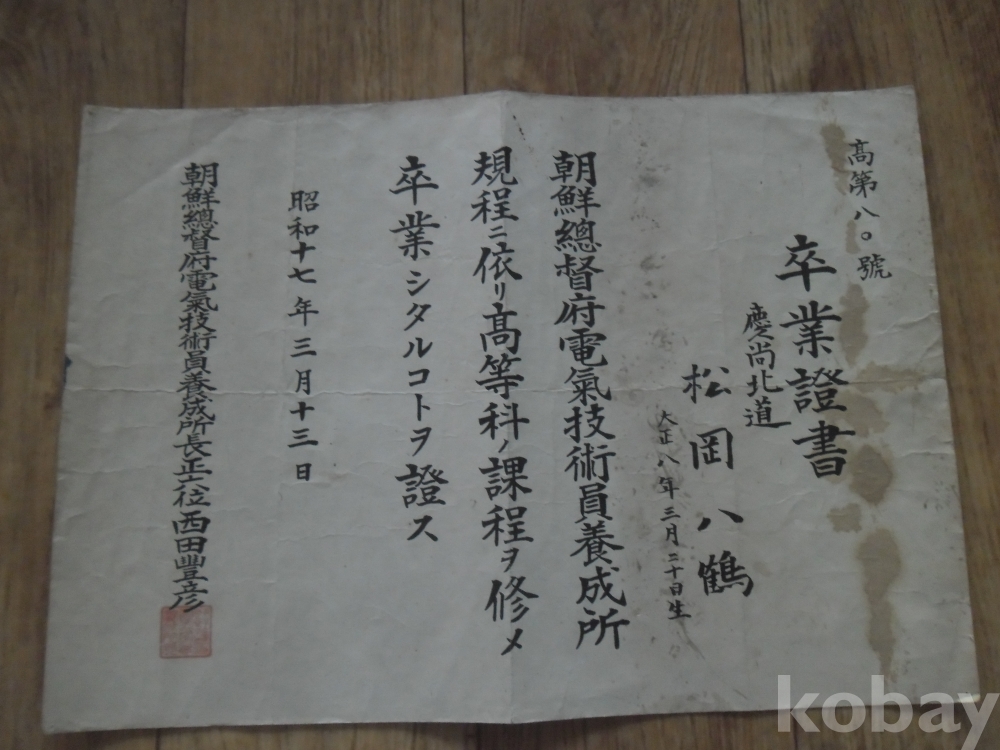 高第八〇號
卒業證書
慶尚北道
松岡八鶴
大正八年三月二十日生
朝鮮總督府電氣技術員養成所
規程ニ依リ高等科ノ課程ヲ修メ
卒業シタルコトヲ證ス
昭和十七年三月十三日
朝鮮總督府電氣技術員養成所長正六位西田豐彦
kobay